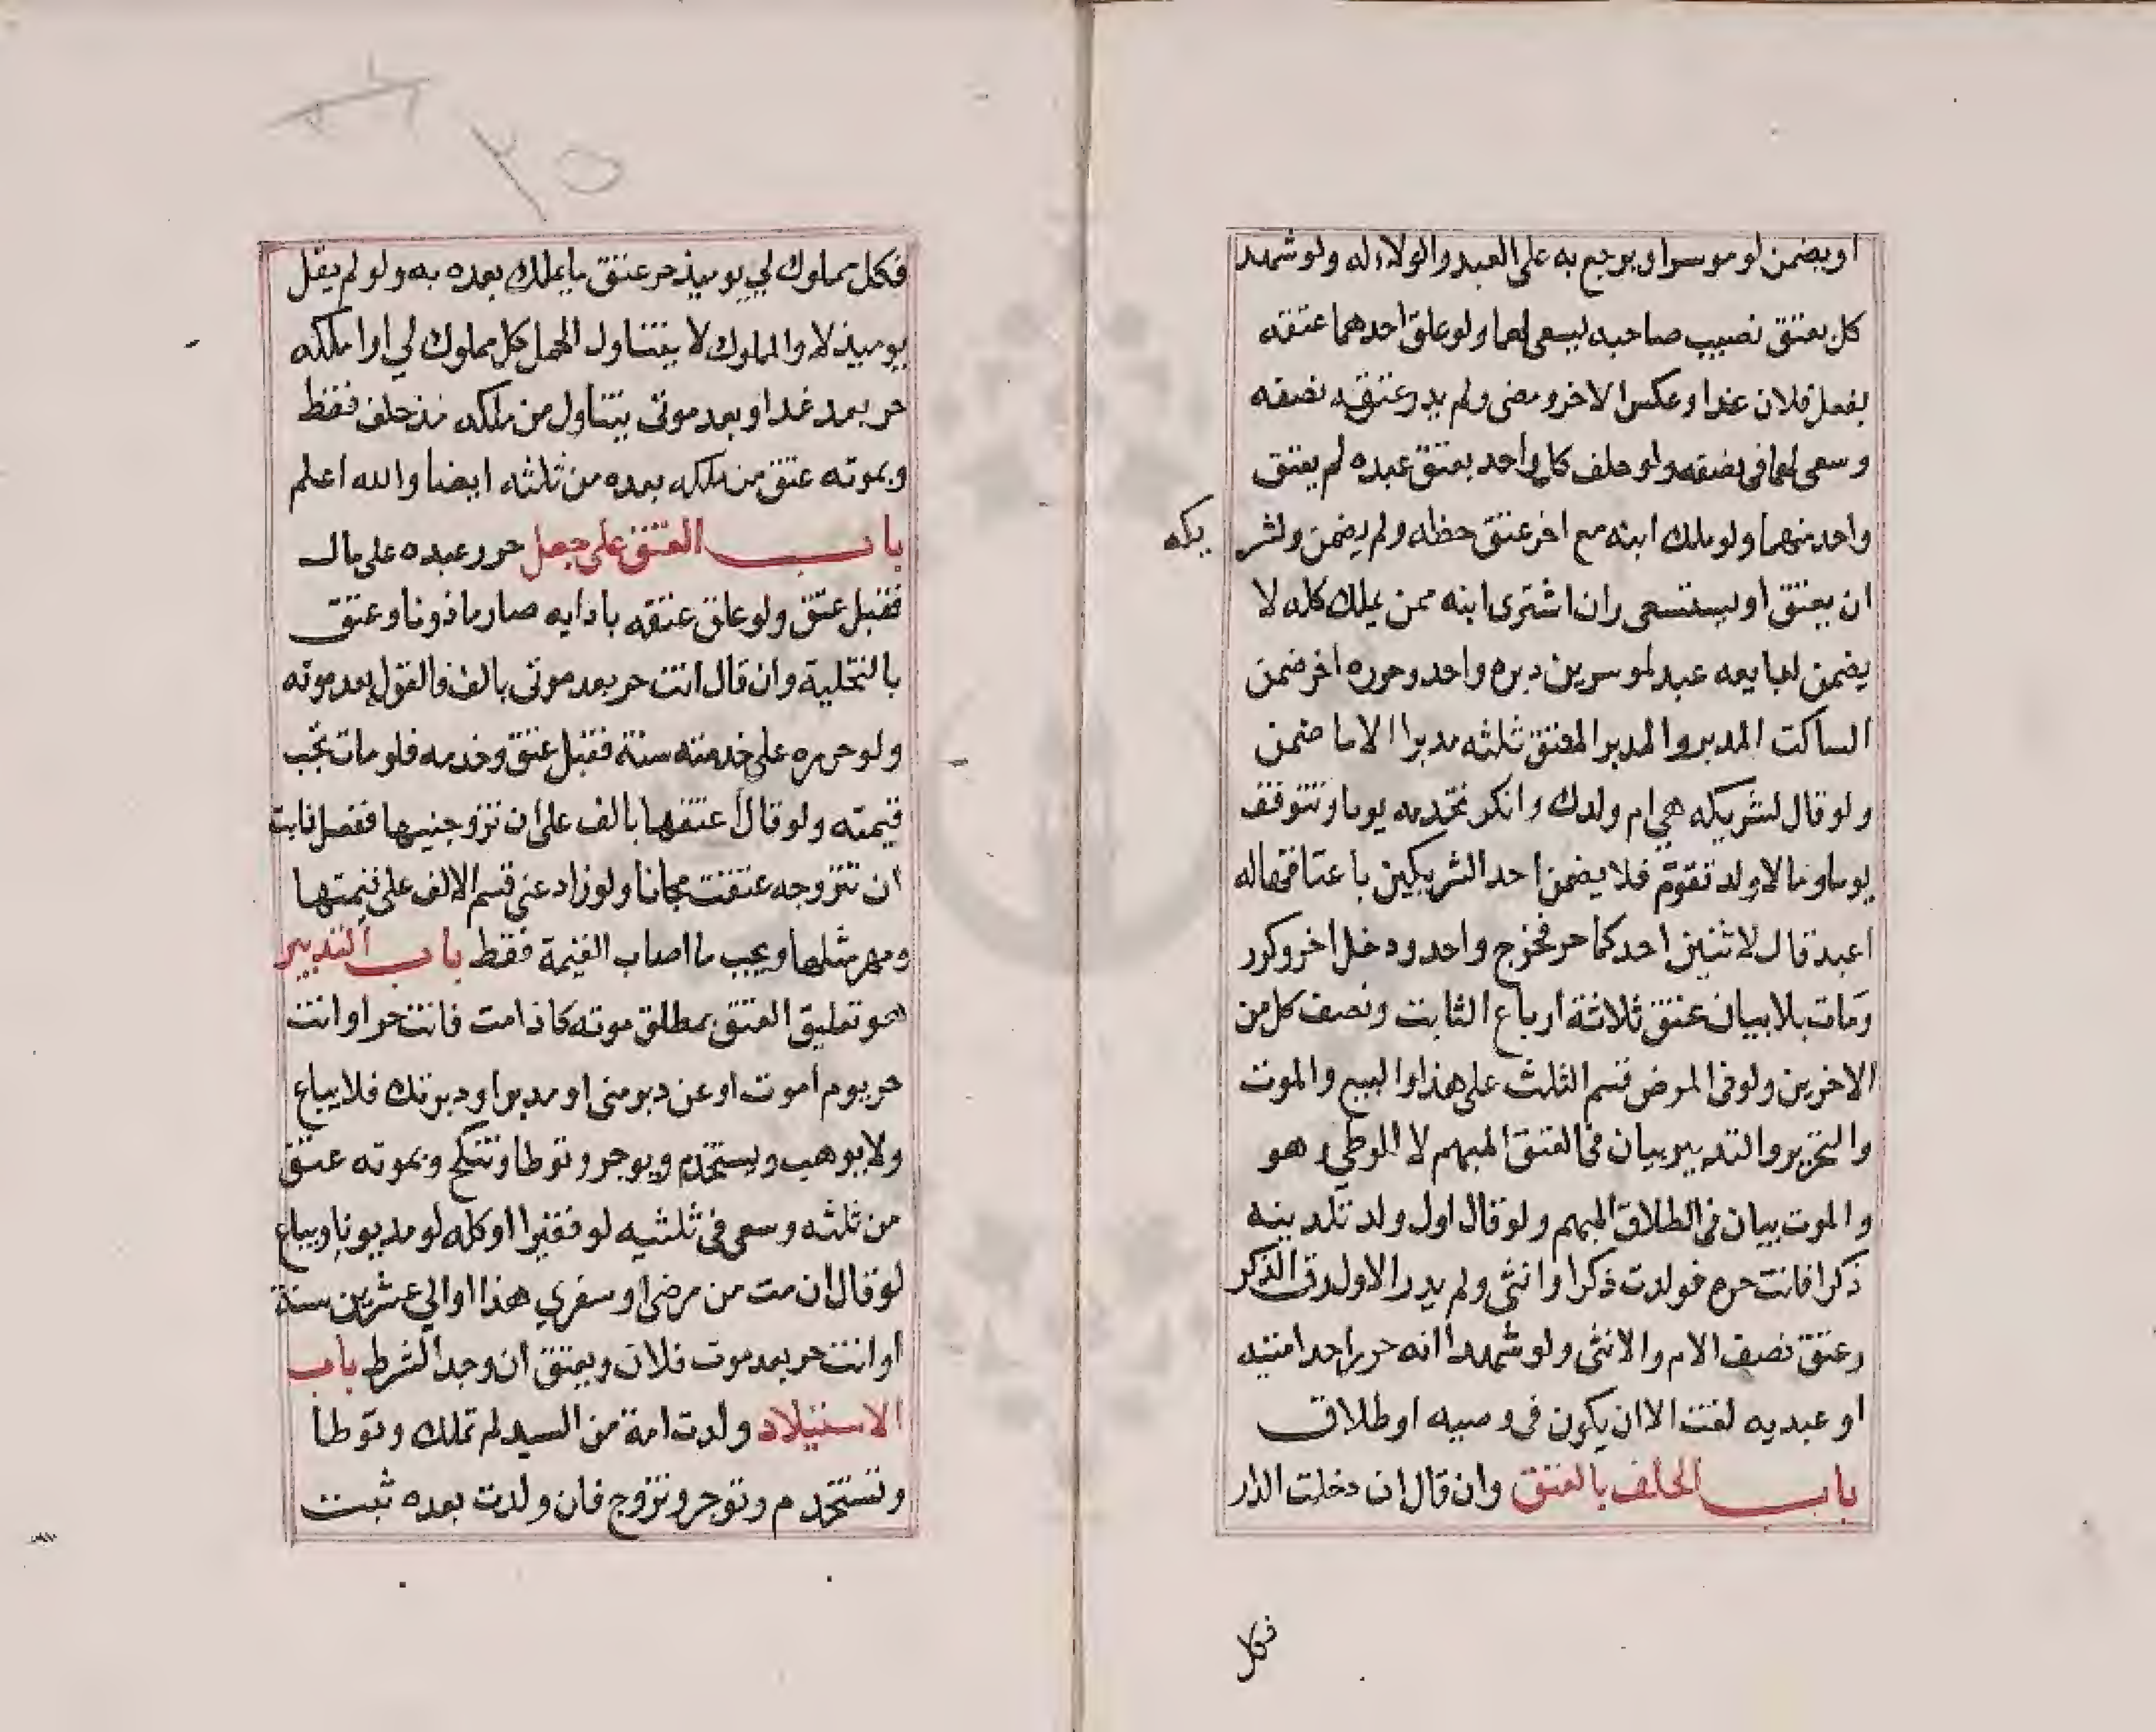 او يضمن لو موسرا ويرجع به على العبد والولاء له ولو شهد
كل بعتق نصيب صاحبه ليسعى لهما ولو علق احدهما عتقه
بفعل فلان غدا وعكس الاخر ومضى ولم يدر عتق نصفه
وسعى لهما فى نصفه ولو حلف كل واحد بعتق عبده لم يعتق
واحد منهما ولو ملك ابنه مع اخر عتق حظه ولم يضمن ولشر يكه
ان يعتق او يستسعى وان اشترى ابنه ممن يملك كله لا
يضمن لبايعه عبد لموسرين دبره واحد وحرره اخر ضمن
الساكت المدبر والمدبر المعتق ثلثه مدبرا لا ما ضمن
ولو قال لشريكه هي ام ولدك وانكر تخدمه يوما وتتوقف
يوما وما لام ولد تقوّم فلا يضمن احد الشريكين باعتاقها له
اعبد قال لاثنين احدكما حر فخرج واحد ودخل اخر وكرر
ومات بلا بيان عتق ثلاثة ارباع الثابت ونصف كل من
الاخرين ولو فى المرض قسم الثلث على هذا والبيع والموت
والتحرير والتدبير بيان فى العتق المبهم لا الوطي وهو
والموت بيان فى الطلاق المبهم ولو قال اول ولد تلدينه
ذكرا فانت حره فولدت ذكرا وانثى ولم يدر الاول رق الذكر
وعتق نصف الام والانثى ولو شهدا انه حرر احد امتيه
او عبديه لغت الا ان يكون فى وصيه او طلاق
باب الحلف بالعتق وان قال ان دخلت الدار
فكل
فكل مملوك لي يوميذ حر عتق ما يملك بعده به ولو لم يقل
يوميذ لا والمملوك لا يتناول الحمل كل مملوك لي او املكه
حر بعد غدا وبعد موتى يتناول من ملكه مذ حلف فقط
وبموته عتق من ملكه بعده من ثلثه ايضا والله اعلم
باب العتق على جعل حرر عبده على مال
فقبل عتق ولو علق عتقه بادايه صار ماذونا وعتق
بالتخلية وان قال انت حر بعد موتى بالف فالقبول بعد موته
ولو حرره على خدمته سنة فقبل عتق وخدمه فلو مات تجب
قيمته ولو قال أعتقها بالف على أن تزوجنيها ففعل فابت
ان تتزوجه عتقت مجانا ولو زاد عني قسم الالف على قيمتها
ومهر مثلها ويجب ما اصاب القيمة فقط باب التدبير
هو تعليق العتق بمطلق موته كاذا مت فانت حر او انت
حر يوم اموت او عن دبر منى او مدبر او دبرتك فلا يباع
ولا يوهب ويستخدم ويوجر وتوطا وتنكح وبموته عتق
من ثلثه وسعى فى ثلثيه لو فقيرا او كله لو مديونا ويباع
لو قال ان مت من مرضى او سفري هذا او الي عشرين سنة
او انت حر بعد موت فلان ويعتق ان وجد الشرط باب
الاستيلاد ولدت امة من السيد لم تملك وتوطا
وتستخدم وتوجر وتزوج فان ولدت بعده ثبت